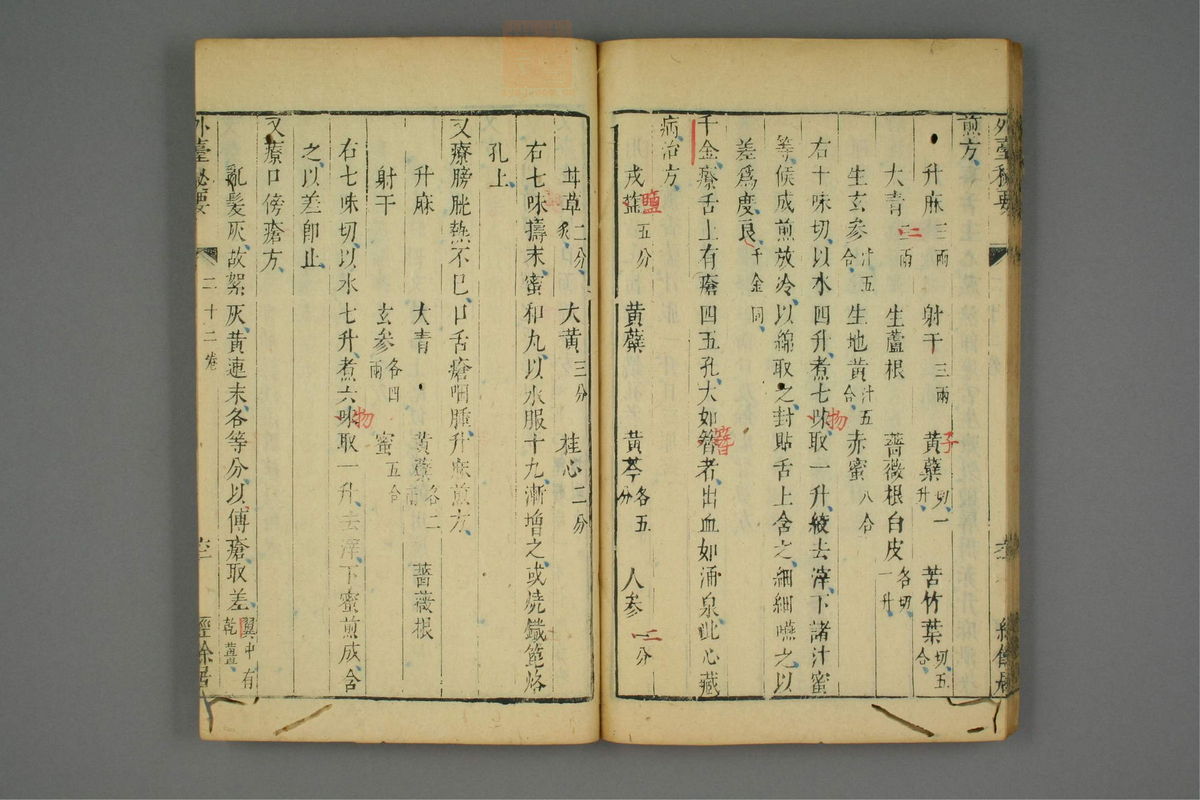 煎方
升麻三兩　射干三兩　黃蘗切一升　子　苦竹葉切五合
大青二兩　生蘆根　薔薇根白皮各切一升
生玄參汁五合　生地黃汁五合　赤蜜八合
右十味切以水四升煮七味取一升絞去滓下諸汁蜜　物
等候成煎放冷以綿取之封貼舌上含之細細嚥之以
差爲度良千金同
千金療舌上有瘡四五孔大如簪者出血如涌泉此心藏　簪
病治方
戎鹽五分　鹽　黃蘗　黃芩各五分　人參二分
甘草二分炙　大黃三分　桂心二分
右七味擣末蜜和丸以水服十丸漸增之或燒鐵篦烙
孔上
又療膀胱熱不已口舌瘡咽腫升麻煎方
升麻　大青　黃蘗各二兩　薔薇根
射干　玄參各四兩　蜜五合
右七味切以水七升煮六味取一升去滓下蜜煎成含　物
之以差卽止
又療口傍瘡方
亂髮灰故絮灰黃連末各等分以傅瘡取差翼中有乾薑
外臺秘要　二十二卷　經餘居